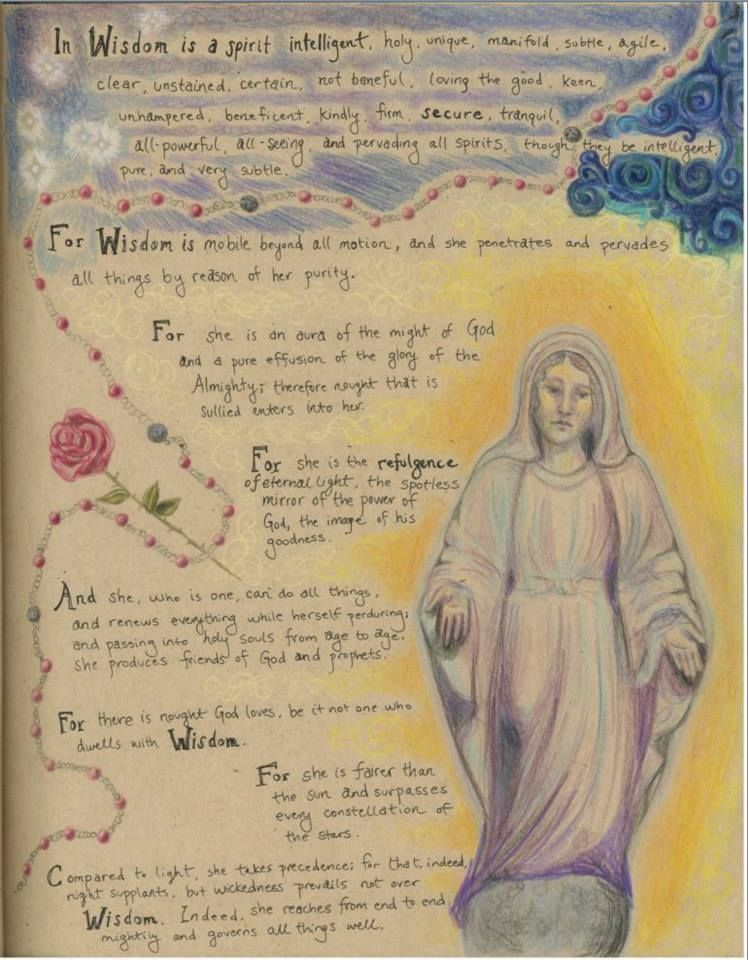 In Wisdom is a spirit intelligent, holy, unique, manifold, subtle, agile,
clear, unstained, certain, not baneful, loving the good, keen,
unhampered, beneficent, kindly, firm, secure, tranquil,
all-powerful, all-seeing, and pervading all spirits, though they be intelligent,
pure, and very subtle.
For Wisdom is mobile beyond all motion, and she penetrates and pervades
all things by reason of her purity.
For she is an aura of the might of God
and a pure effusion of the glory of the
Almighty; therefore nought that is
sullied enters into her.
For she is the refulgence
of eternal light, the spotless
mirror of the power of
God, the image of his
goodness.
And she, who is one, can do all things,
and renews everything while herself perduring;
and passing into holy souls from age to age,
she produces friends of God and prophets.
For there is nought God loves, be it not one who
dwells with Wisdom.
For she is fairer than
the sun and surpasses
every constellation of
the stars.
Compared to light, she takes precedence; for that, indeed,
night supplants, but wickedness prevails not over
Wisdom. Indeed, she reaches from end to end
mightily and governs all things well.